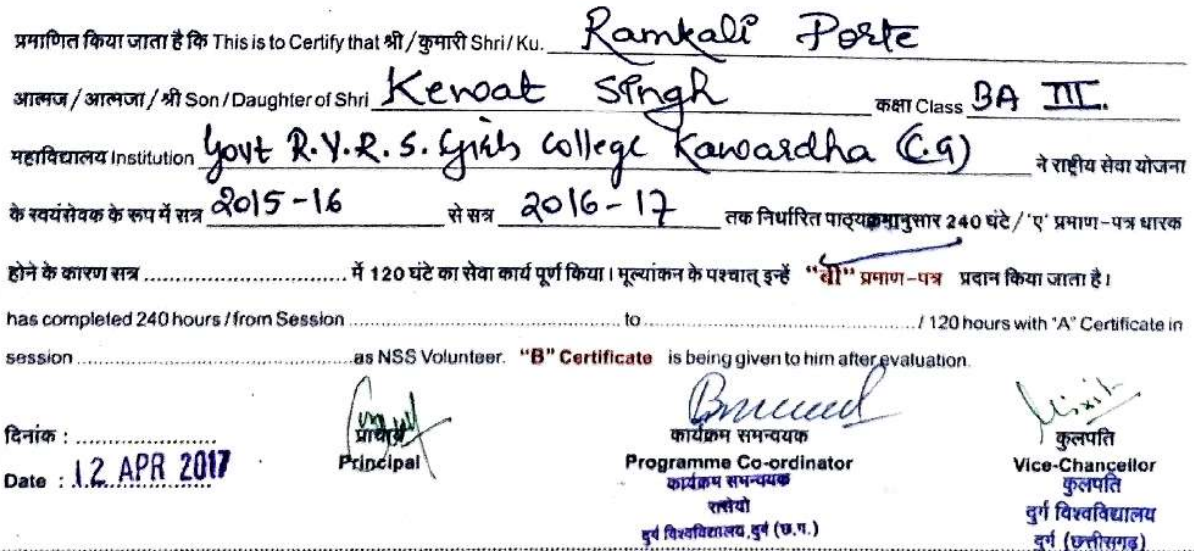 प्रमाणित किया जाता है कि This is to Certify that श्री / कुमारी Shri / Ku. Ramkali Porte
आत्मज / आत्मजा / श्री Son / Daughter of Shri Kewat Singh कक्षा Class BA III.
महाविद्यालय Institution Govt R.V.R.S. Girls College Kawardha (C.G) ने राष्ट्रीय सेवा योजना
के स्वयंसेवक के रूप में सत्र 2015-16 से सत्र 2016-17 तक निर्धारित पाठ्यक्रमानुसार 240 घंटे / 'ए' प्रमाण-पत्र धारक
होने के कारण सत्र .................................. में 120 घंटे का सेवा कार्य पूर्ण किया। मूल्यांकन के पश्चात् इन्हें "बी" प्रमाण-पत्र प्रदान किया जाता है।
has completed 240 hours / from Session .............................................. to .............................................. / 120 hours with "A" Certificate in
session .............................................. as NSS Volunteer. "B" Certificate is being given to him after evaluation.
दिनांक : .......................
Date : 12 APR 2017
प्राचार्य
Principal
कार्यक्रम समन्वयक
Programme Co-ordinator
कार्यक्रम समन्वयक
रासेयो
दुर्ग विश्वविद्यालय, दुर्ग (छ.ग.)
कुलपति
Vice-Chancellor
कुलपति
दुर्ग विश्वविद्यालय
दुर्ग (छत्तीसगढ़)